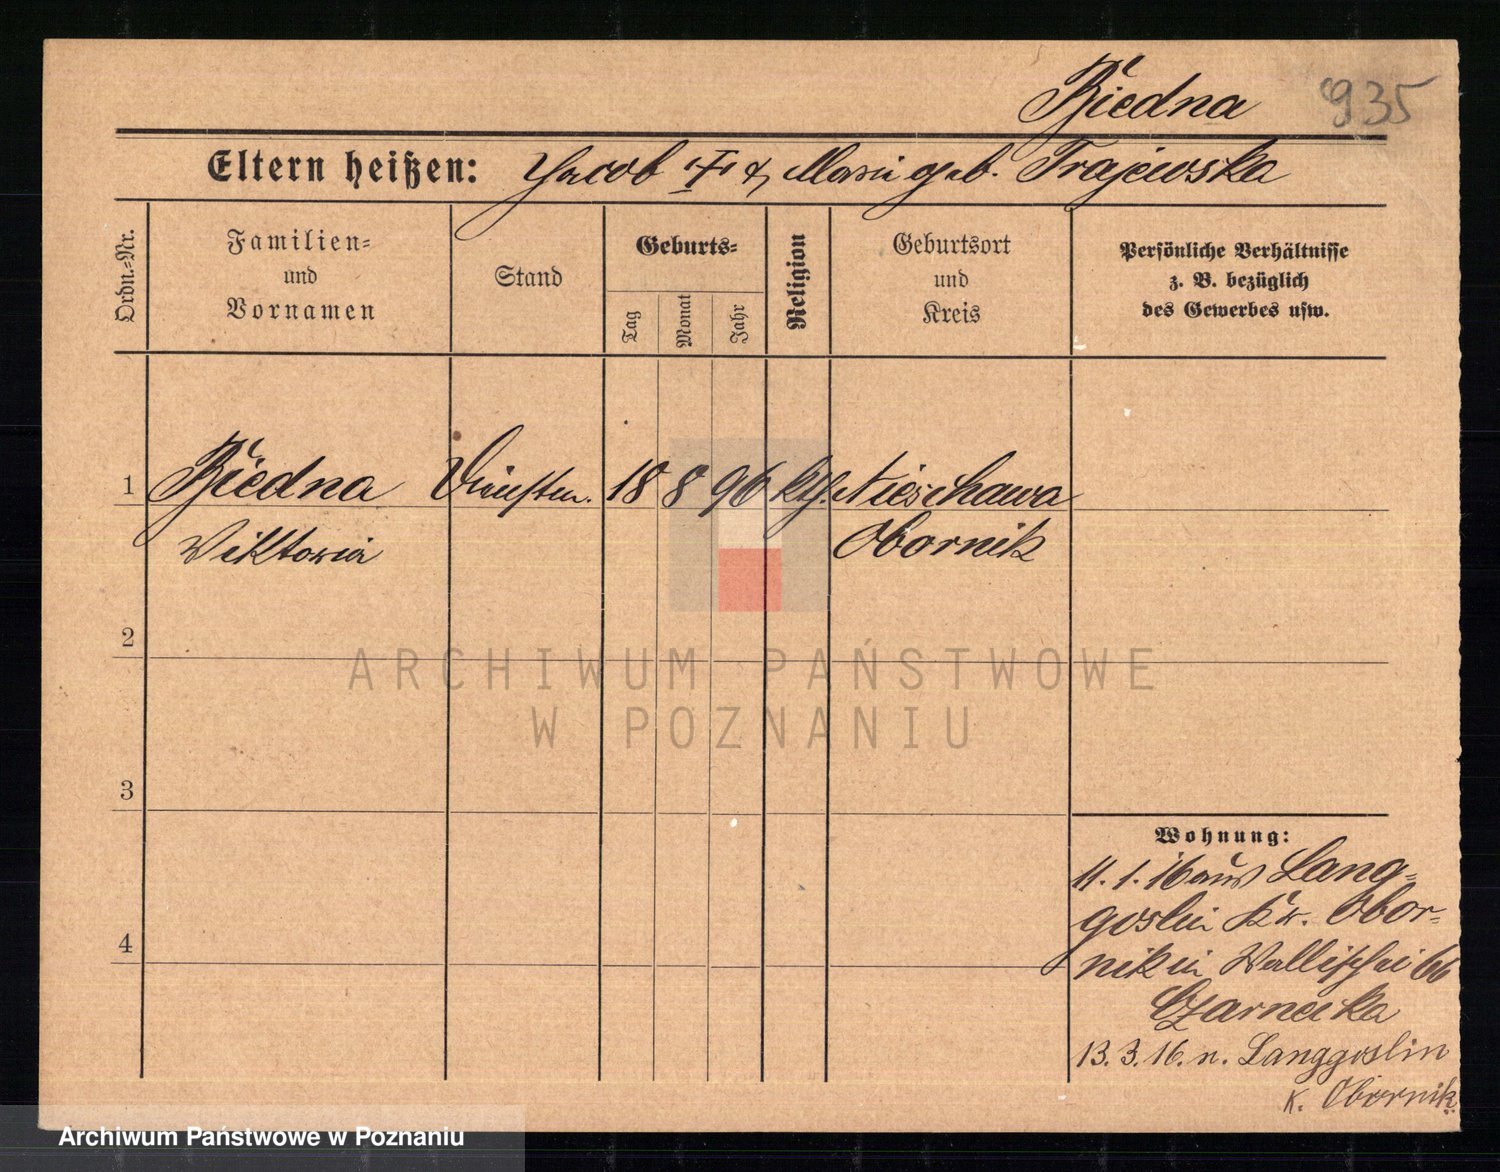 Biedna 935
Eltern heißen: Jacob & Marie geb. Trajewska
Ordn.-Nr.
Familien-
und
Vornamen
Stand
Geburts-
Tag
Monat
Jahr
Religion
Geburtsort
und
Kreis
Persönliche Verhältnisse
z. B. bezüglich
des Gewerbes usw.
1 Biedna 18 8 96 kth. Nieschawa
Viktoria Obornik
2
3
4
Wohnung:
11.1.16 aus Lang-
goslin Kr. Obor-
nik in Wallischei 66
Czarnecka
13.3.16. n. Langgoslin
K. Obornik
ARCHIWUM PAŃSTWOWE
W POZNANIU
Archiwum Państwowe w Poznaniu